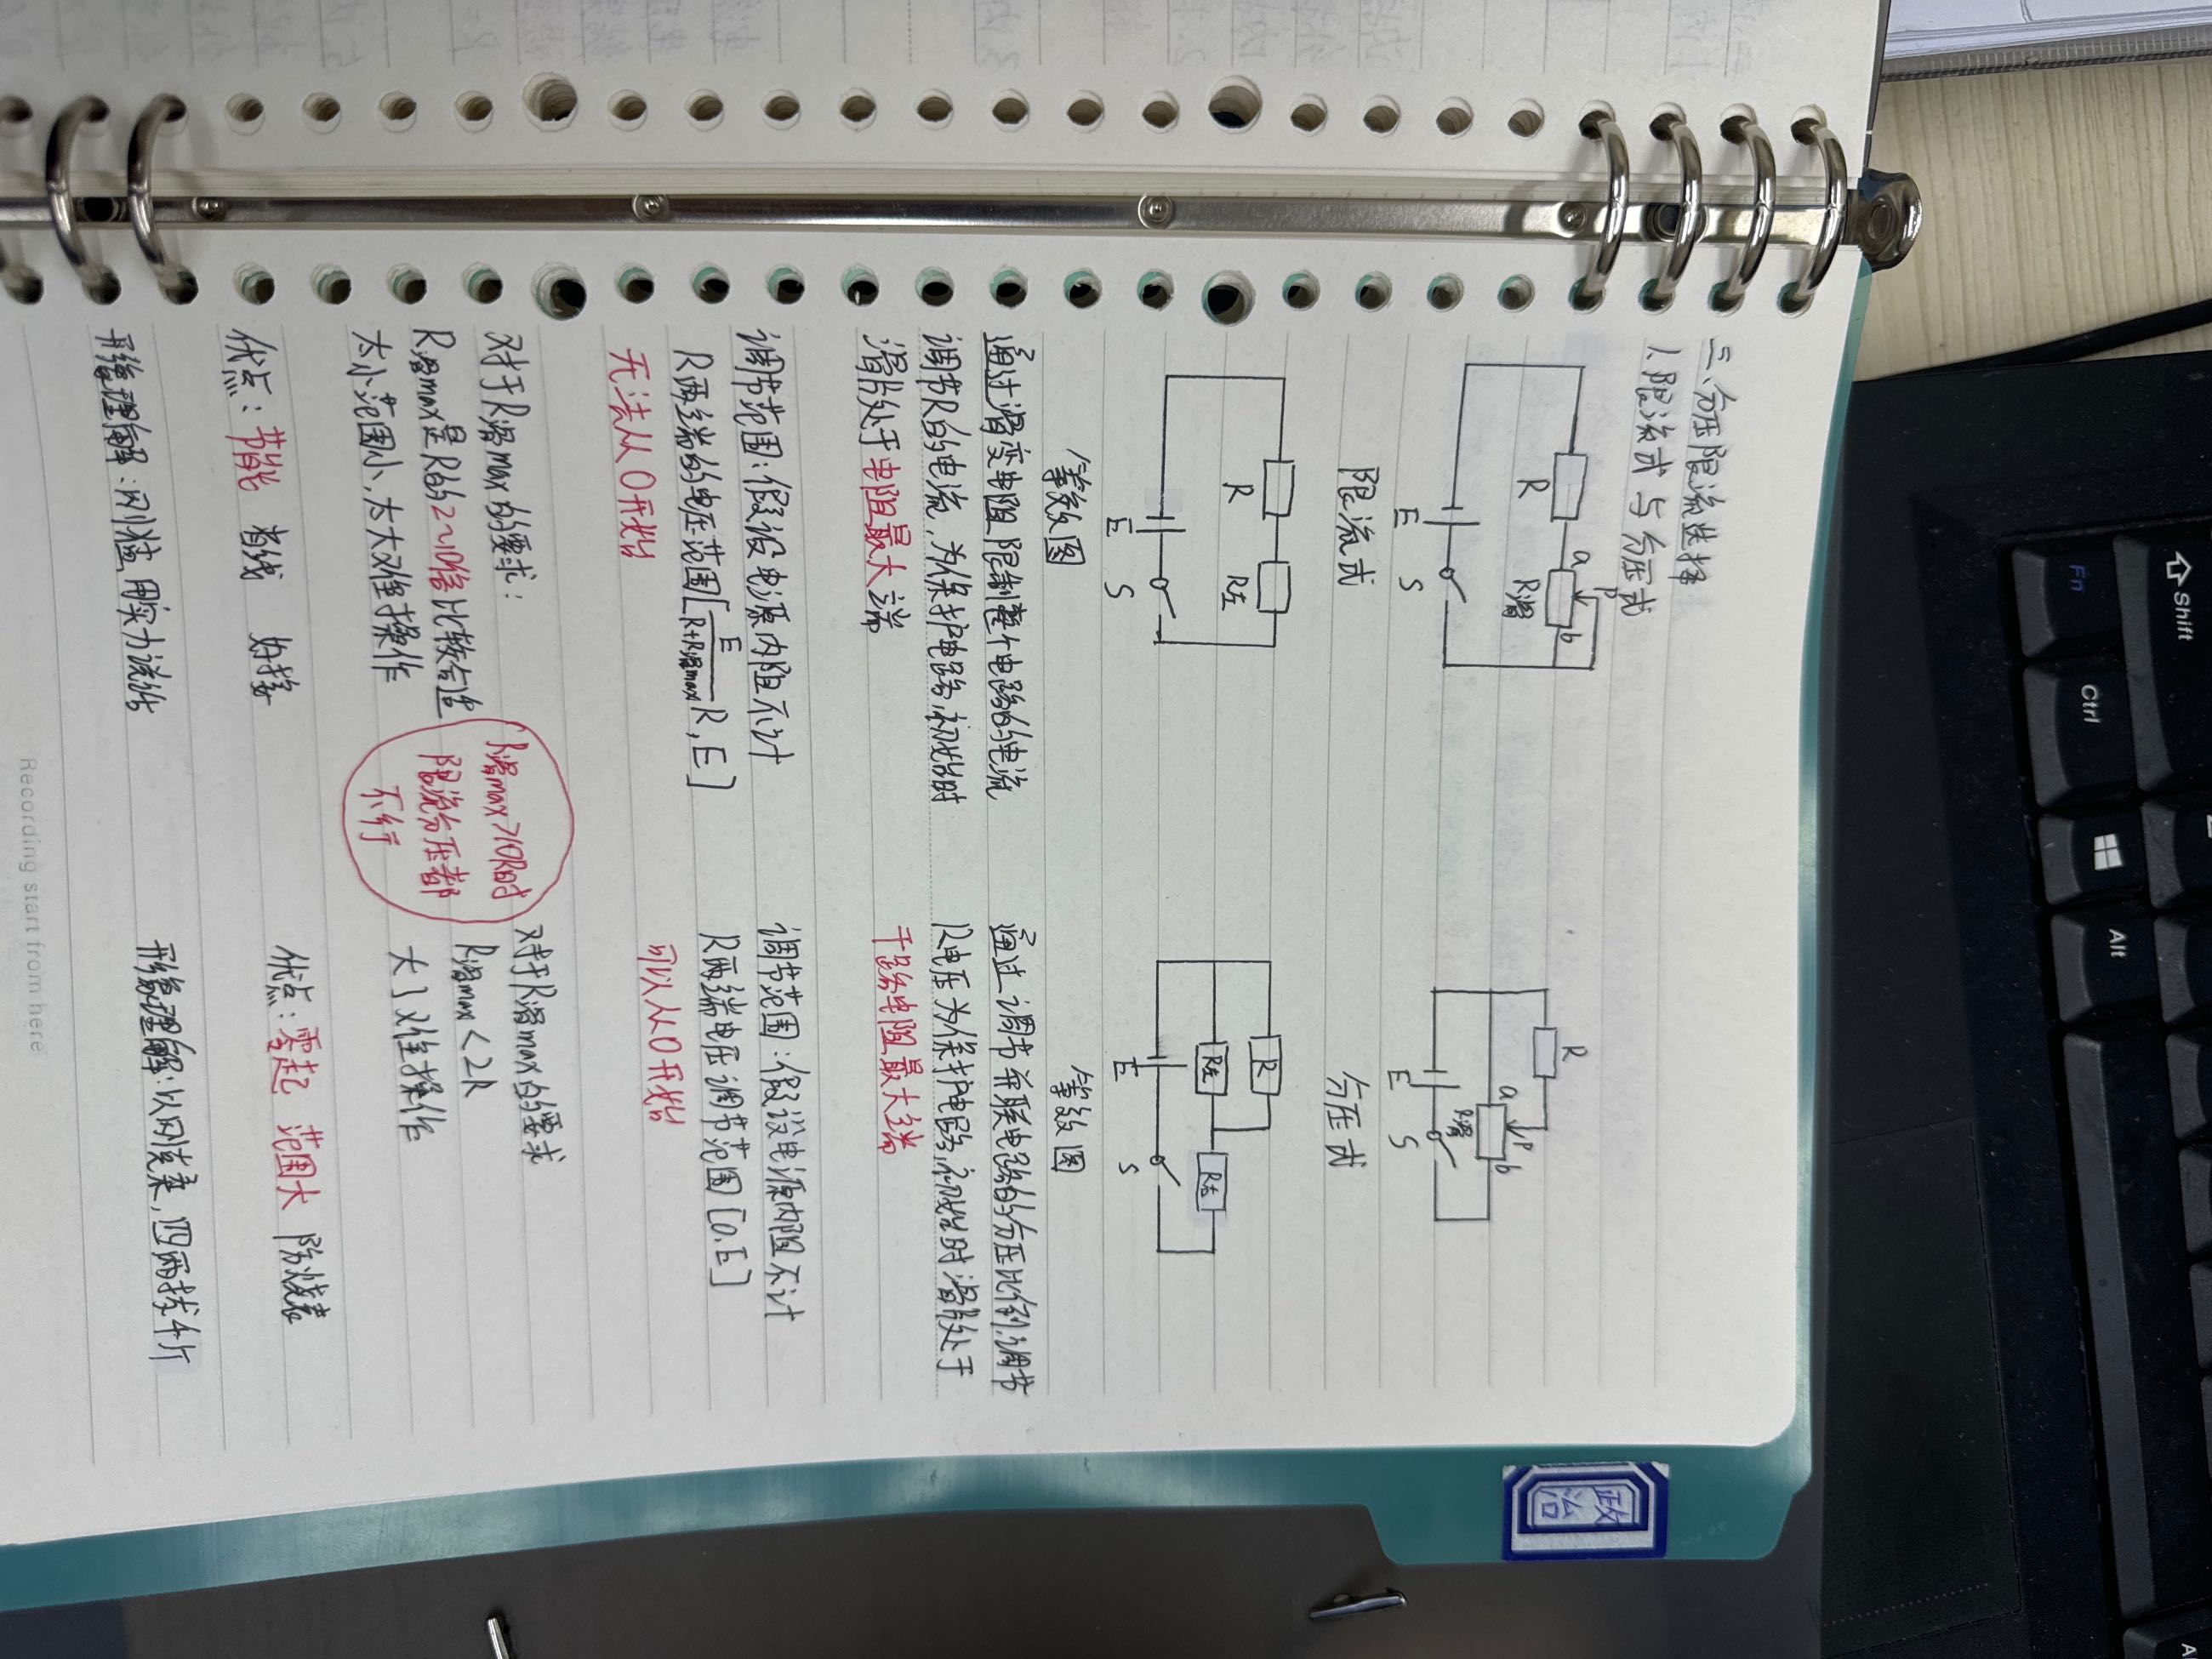 三、分压限流选择
1.限流式与分压式
R
a
P
b
R滑
E
S
限流式
R
R左
E
S
等效图
通过滑变电阻限制整个电路的电流
调节R的电流,为保护电路,初始时
滑片处于电阻最大端
调节范围:假设电源内阻不计
R两端的电压范围[E/(R+R滑max) R,E]
无法从0开始
对于R滑max的要求:
R滑max是R的2~10倍比较合适
太小范围小,太大难操作
优点:节能 省线 好接
形象理解:以刚猛,用实力说话
R滑max>10R时
限流分压都
不行
R
a
P
b
R滑
E
S
分压式
R
R左
R右
E
S
等效图
通过调节并联电路的分压比例,调节
R电压为保护电路,初始时滑片处于
干路电阻最大端
调节范围:假设电源内阻不计
R两端电压调节范围[0,E]
可以从0开始
对于R滑max的要求
R滑max<2R
大了难操作
优点:零起 范围大 防烧表
形象理解:以网克柔,四两拨千斤
Recording start from here
政治
Shift
Fn
Ctrl
Alt